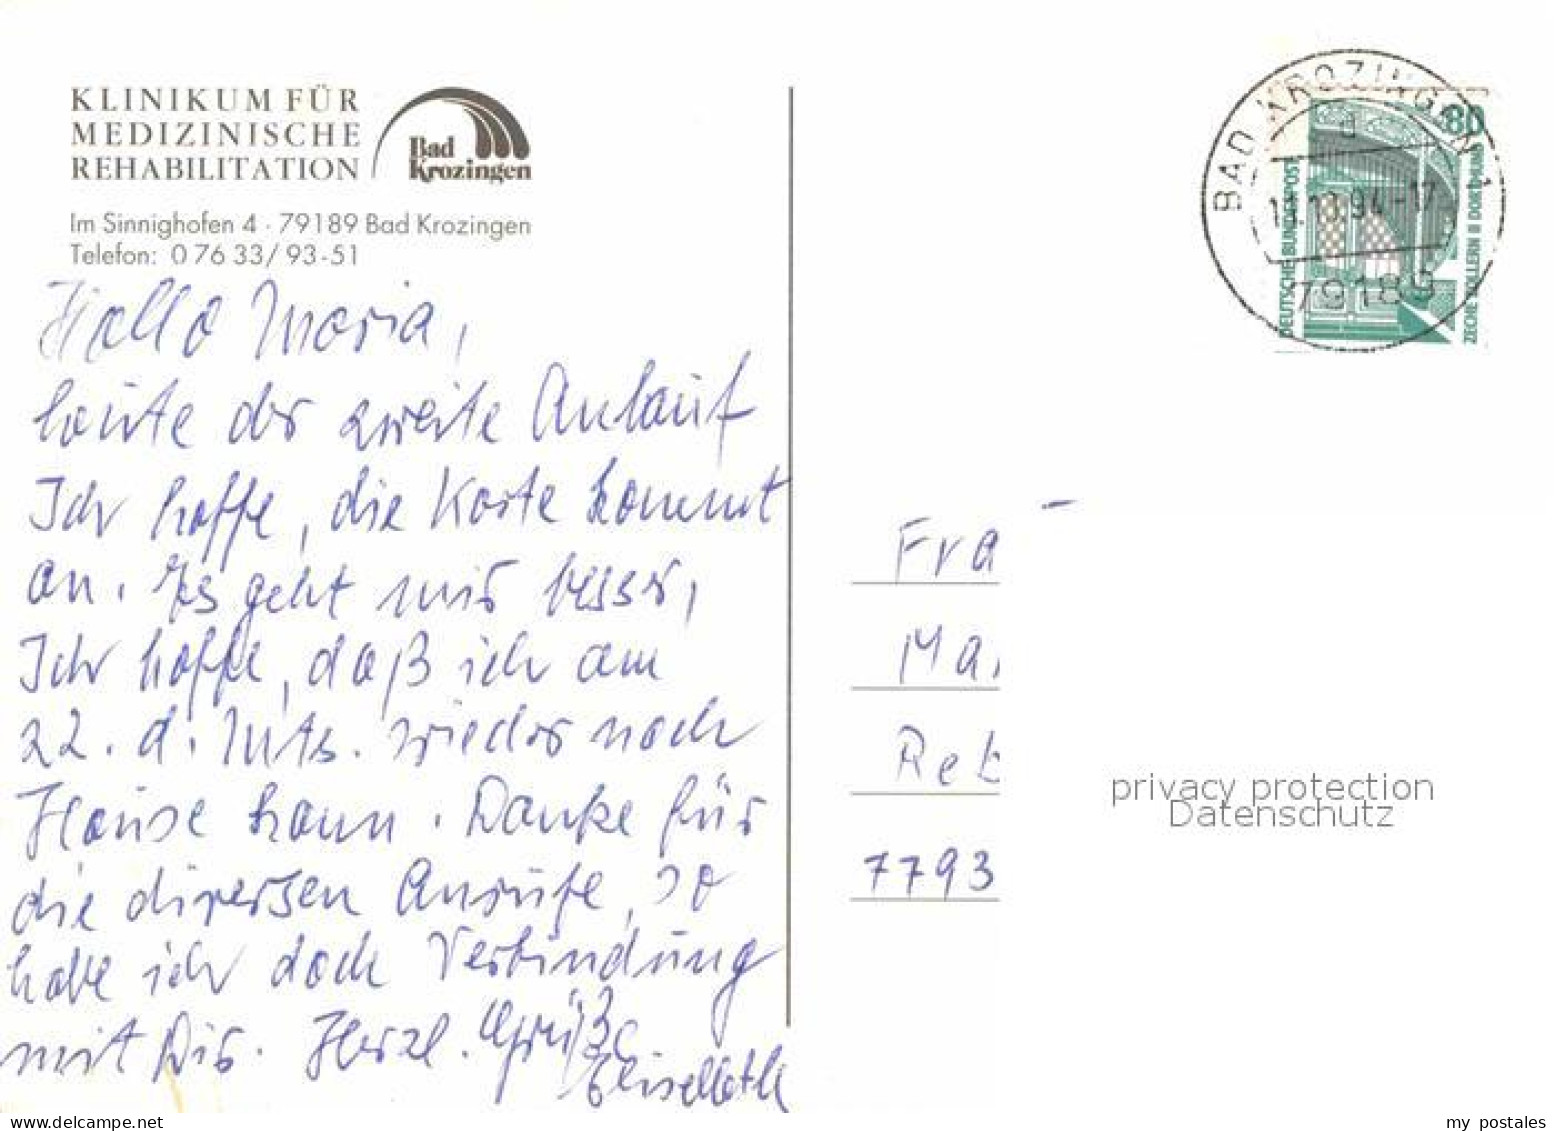 KLINIKUM FÜR
MEDIZINISCHE
REHABILITATION
Bad
Krozingen
Im Sinnighofen 4 · 79189 Bad Krozingen
Telefon: 0 76 33/ 93-51
Hallo Maria,
heute der zweite Anlauf
Ich hoffe, die Karte kommt
an. Es geht mir besser,
Ich hoffe, daß ich am
22. d. Mts. wieder nach
Hause kann. Danke für
die diversen Anrufe, so
habe ich doch Verbindung
mit Dir. Herzl. Grüße
BAD KROZINGEN 1
d
.94-17
79189
80
DEUTSCHE BUNDESPOST
ZECHE ZOLLERN II DORTMUND
Fra
Ma
Reb
7793
privacy protection
Datenschutz
my postales